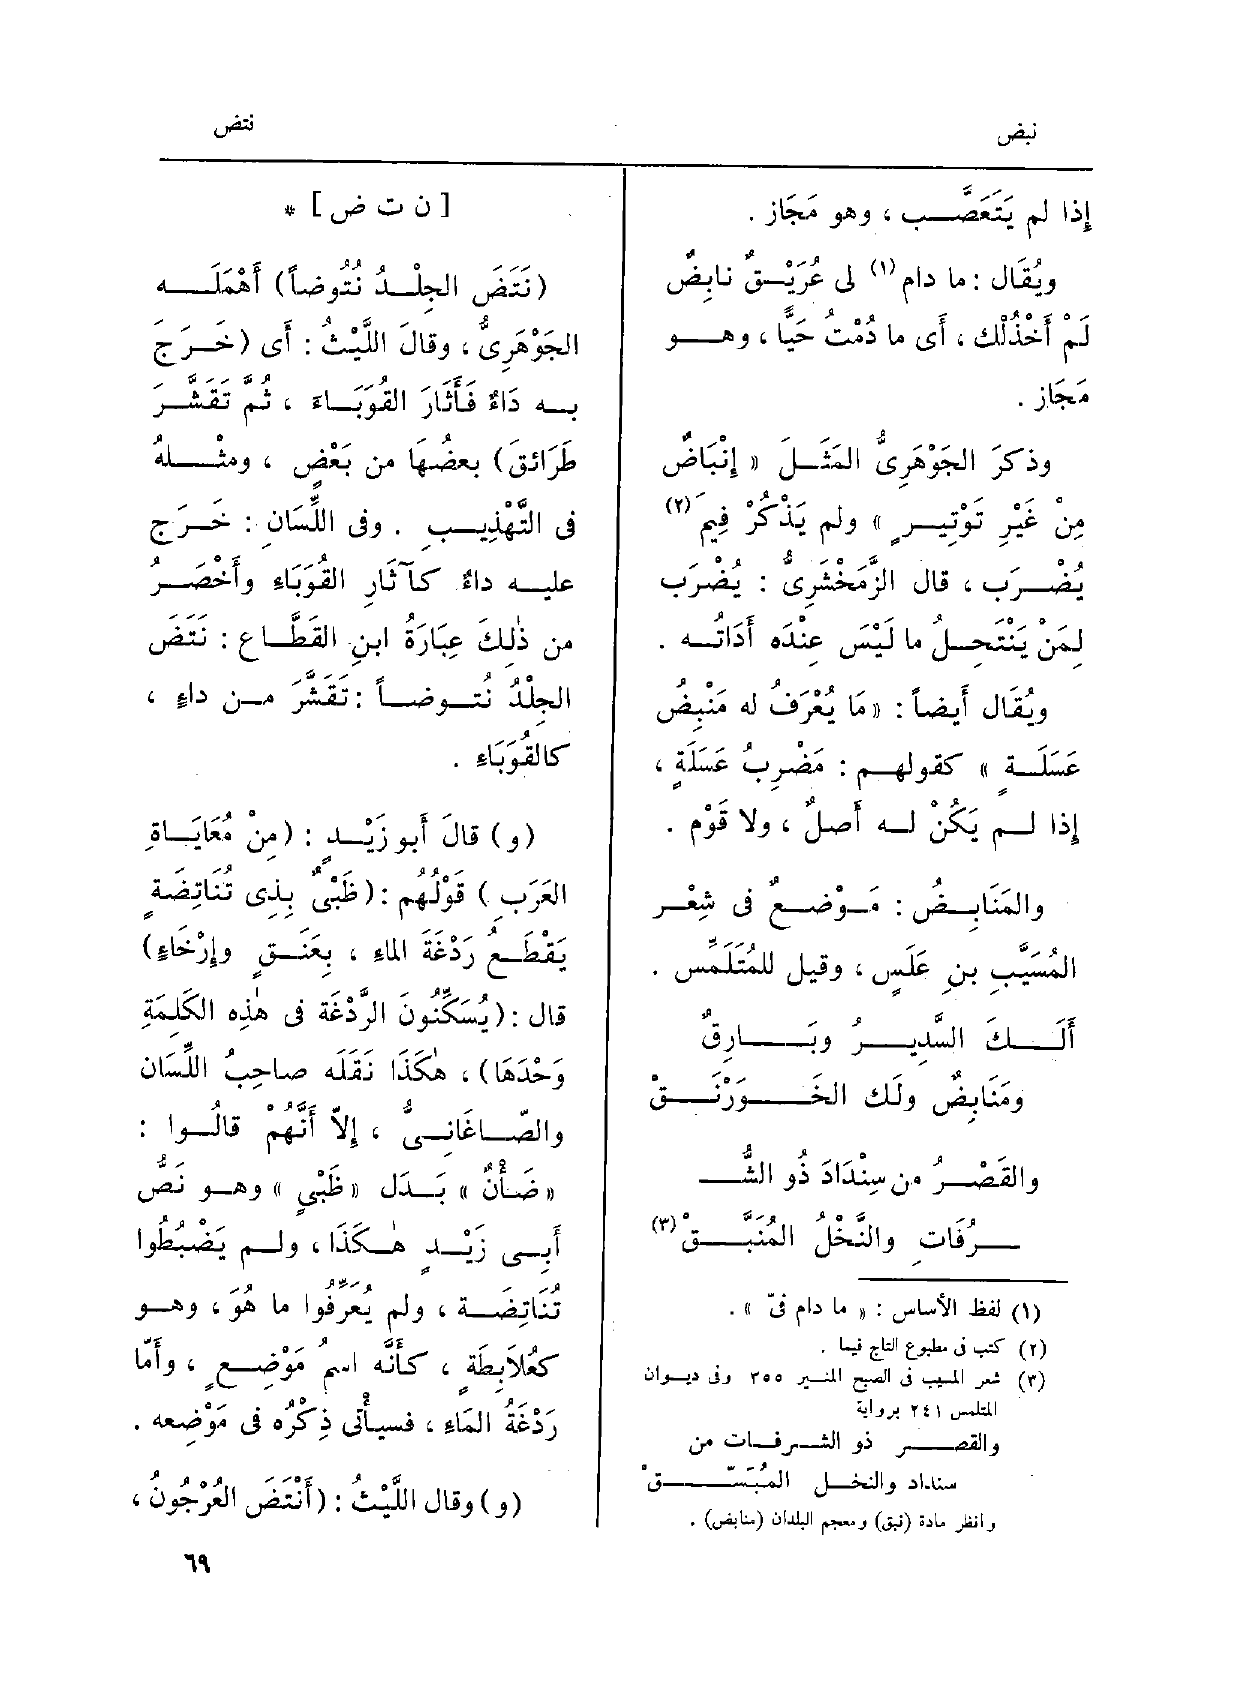 نبض
نتض
إذا لم يَتَعَصَّب ، وهو مَجَاز .
ويُقَال : ما دام (١) لى عُرَيْقٌ نابِضٌ
لَمْ أَخْذُلْك ، أَى ما دُمْتُ حَيًّا ، وهو
مَجَاز .
وذكرَ الجَوْهَرِىُّ المَثَلَ « إِنْبَاضٌ
مِنْ غَيْرِ تَوْتِيرٍ » ولم يَذْكُرْ فِيمَ (٢)
يُضْرَب ، قال الزَّمَخْشَرِىُّ : يُضْرَب
لِمَنْ يَنْتَحِلُ ما لَيْسَ عِنْدَه أَدَاتُه .
ويُقَال أَيضاً : « مَا يُعْرَفُ له مَنْبِضُ
عَسَلَةٍ » كقولهم : مَضْرِبُ عَسَلَةٍ ،
إِذا لم يَكُنْ له أَصلٌ ، ولا قَوْم .
والمَنَابِضُ : مَوْضعٌ فى شِعْر
المُسَيَّبِ بنِ عَلَسٍ ، وقيل للمُتَلَمِّس .
أَلَكَ السَّدِيرُ وبَارِقٌ
ومَنَابِضٌ ولَك الخَوَرْنَقْ
والقَصْرُ من سِنْدَادَ ذُو الشُّ
رُفَاتِ والنَّخْلُ المُنَبَّقْ (٣)
(١) لفظ الأساس : « ما دام فىّ » .
(٢) كتب فى مطبوع التاج فيما .
(٣) شعر المسيب فى الصبح المنير ٣٥٥ وفى ديوان
المتلمس ٢٤١ برواية
والقصر ذو الشرفات من
سنداد والنخل المُبَسَّقْ
وانظر مادة (نبق) ومعجم البلدان (منابض) .
[ ن ت ض ] *
(نَتَضَ الجِلْدُ نُتُوضاً) أَهْمَلَه
الجَوْهَرِىُّ ، وقالَ اللَّيْثُ : أَى (خَرَجَ
به دَاءٌ فَأَثَارَ القُوَبَاءَ ، ثُمَّ تَقَشَّرَ
طَرَائقَ) بعضُهَا من بَعْضٍ ، ومثْلُه
فى التَّهْذِيبِ . وفى اللِّسَانِ : خَرَجَ
عليه داءٌ كآثَارِ القُوَبَاءِ وأَخْصَرُ
من ذٰلكَ عِبَارَةُ ابنِ القَطَّاع : نَتَضَ
الجِلْدُ نُتوضاً : تَقَشَّرَ من داءٍ ،
كالقُوَبَاء .
(و) قالَ أَبو زَيْدٍ : (مِنْ مُعَايَاةِ
العَرَبِ ) قَوْلُهُم : (ظَبْىٌ بِذِى تُنَاتِضَةٍ
يَقْطَعُ رَدْغَةَ الماءِ ، بِعَنَقٍ وإِرْخَاءٍ)
قال : (يُسَكِّنُونَ الرَّدْغَة فى هٰذِه الكَلِمَةِ
وَحْدَهَا) ، هٰكَذَا نَقَلَه صاحِبُ اللِّسَان
والصّاغَانىُّ ، إِلاَّ أَنَّهُمْ قالُوا :
« ضَأْنٌ » بَدَل « ظَبْىٍ » وهو نَصُّ
أَبى زَيْدٍ هٰكَذَا ، ولم يَضْبُطُوا
تُنَاتِضَة ، ولم يُعَرِّفُوا ما هُوَ ، وهو
كعُلاَبِطَةٍ ، كأَنَّه اسمُ مَوْضِعٍ ، وأَمَّا
رَدْغَةُ المَاءِ ، فسيأْتى ذِكْرُه فى مَوْضِعه .
(و) وقال اللَّيْثُ : (أَنْتَضَ العُرْجُونُ ،
٦٩